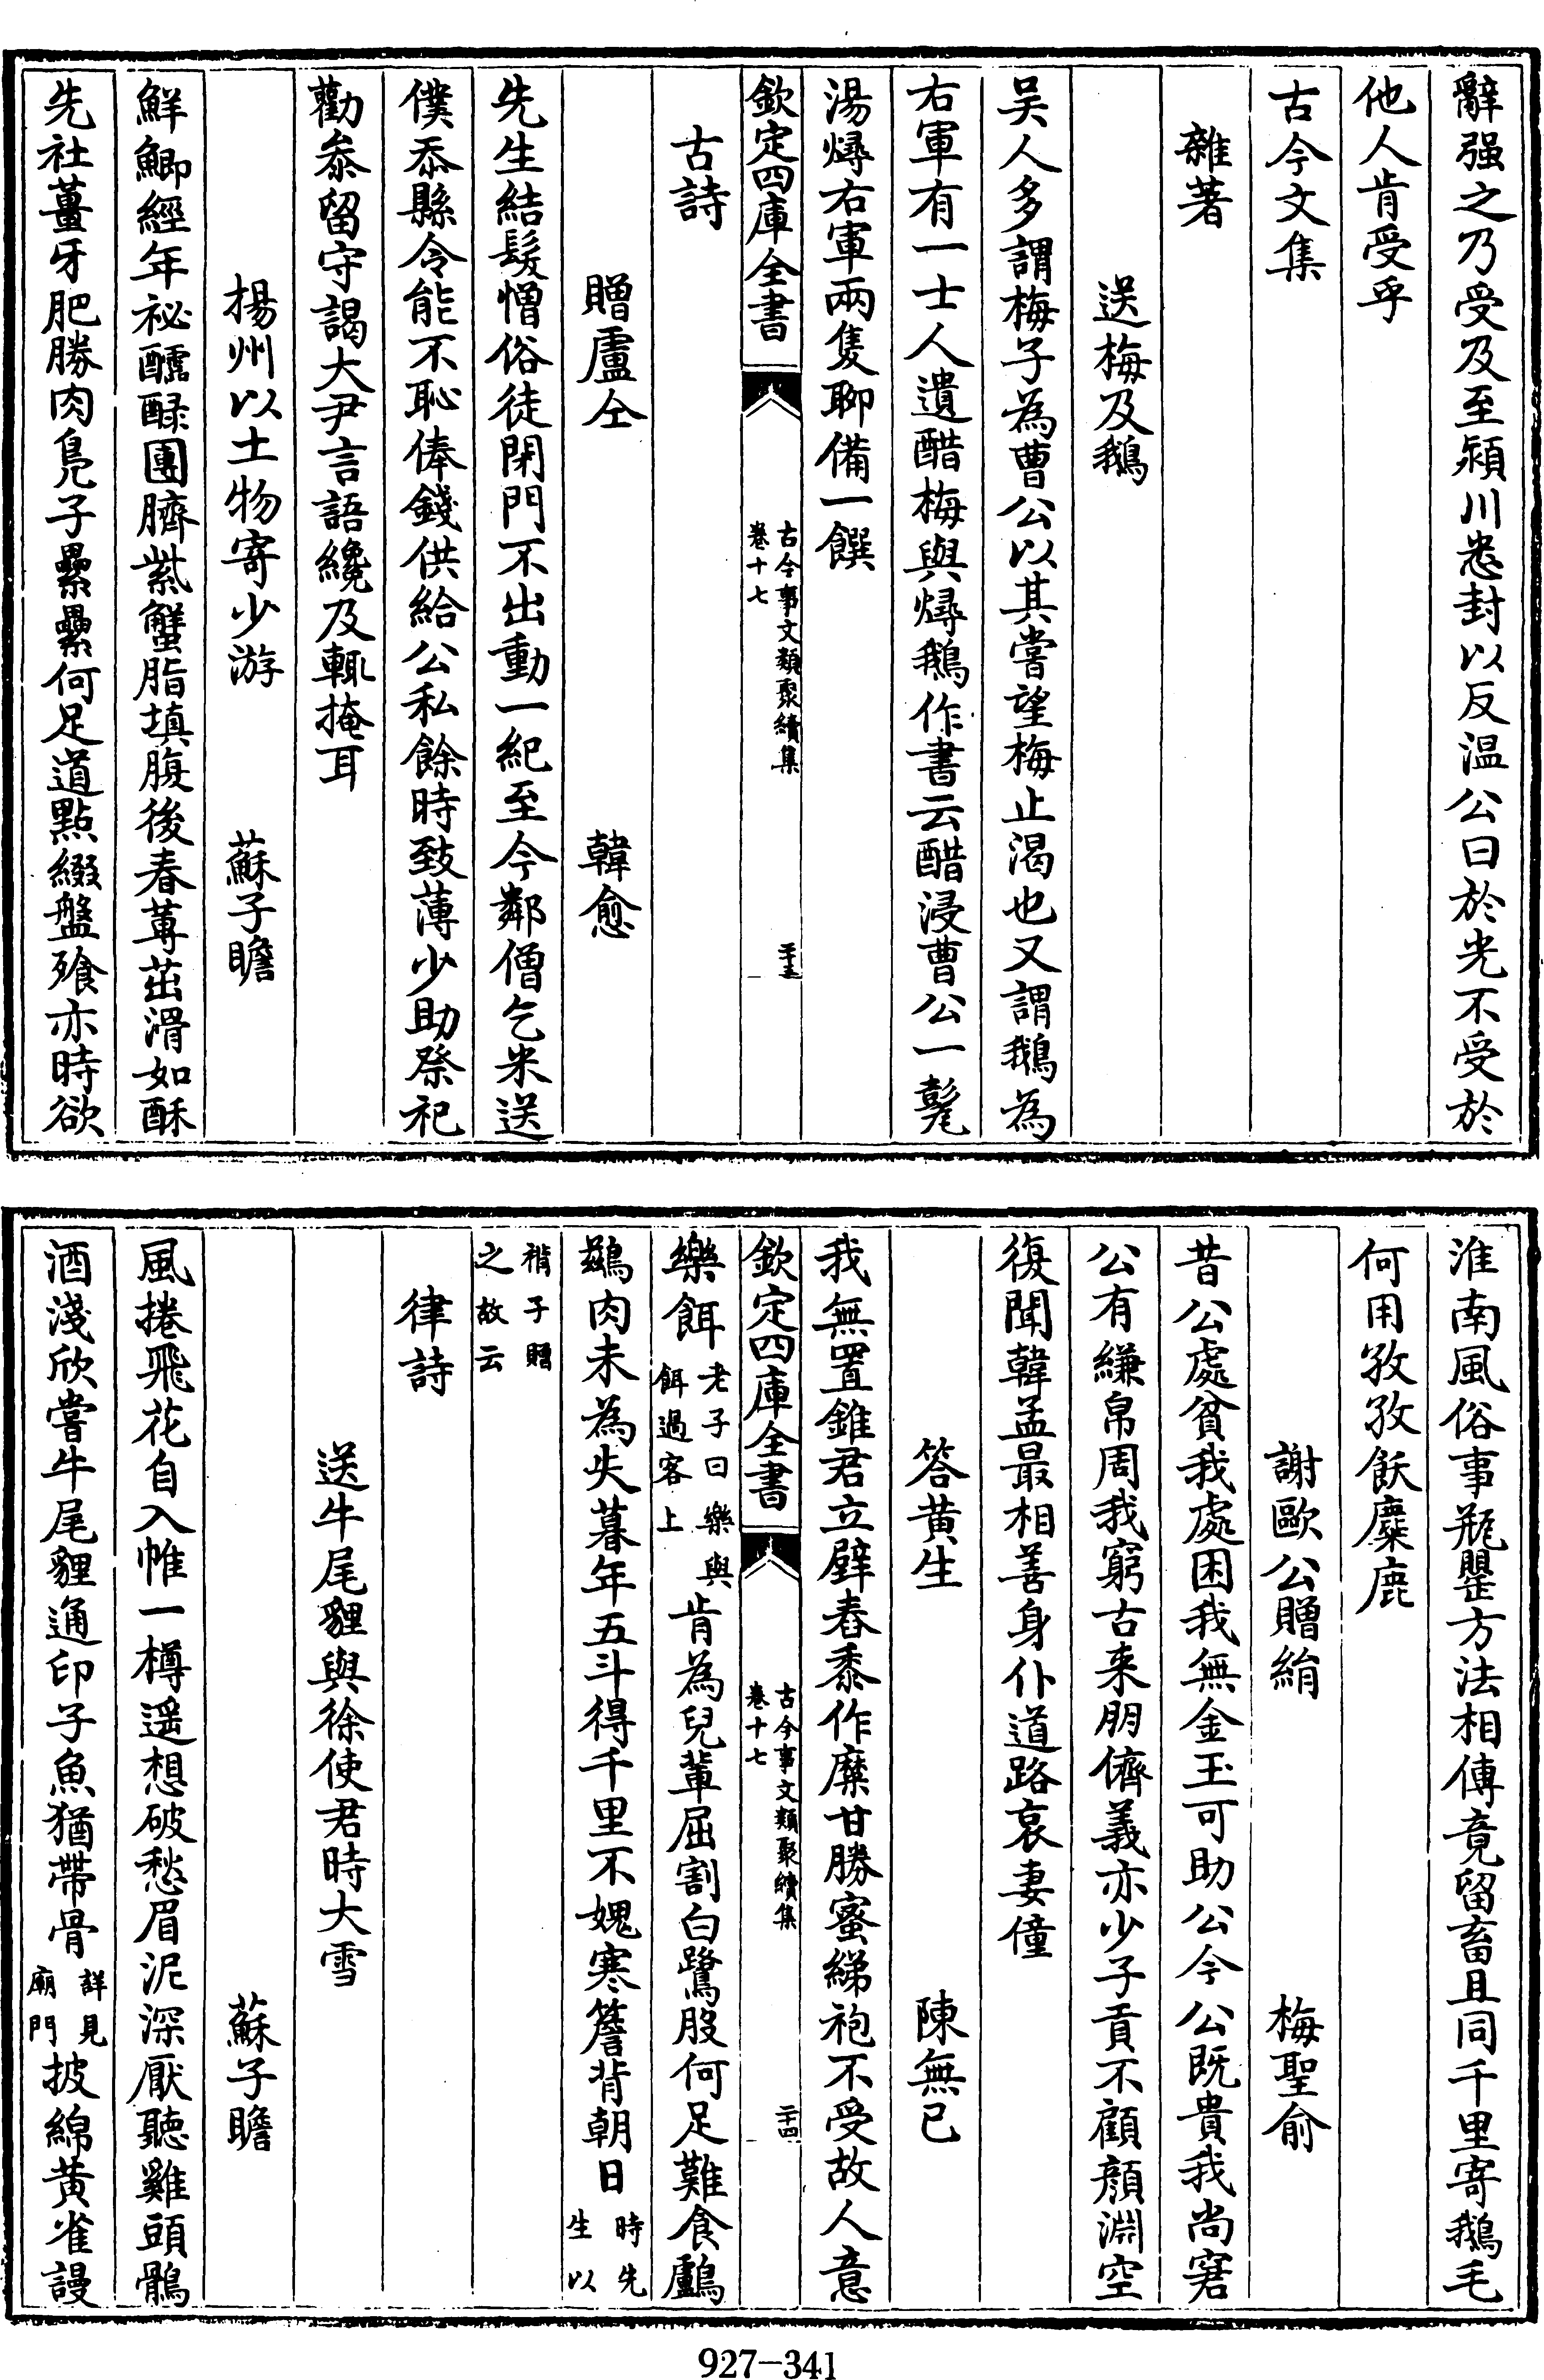 辭强之乃受及至潁川悉封以反温公曰於光不受於
他人肯受乎
古今文集
雜著
送梅及鵝
吴人多謂梅子為曹公以其嘗望梅止渴也又謂鵝為
右軍有一士人遺醋梅與燖鵝作書云醋浸曹公一甏
湯燖右軍兩隻聊備一饌
欽定四庫全書
古今事文類聚續集
卷十七
二十三
古詩
贈盧仝 韓愈
先生結髮憎俗徒閉門不出動一紀至今鄰僧乞米送
僕忝縣令能不恥俸錢供給公私餘時致薄少助祭祀
勸㕘留守謁大尹言語纔及輒掩耳
揚州以土物寄少游 蘇子瞻
鮮鯽經年祕醽醁團臍紫蟹脂填腹後春蓴茁滑如酥
先社薑牙肥勝肉鳧子纍纍何足道點綴盤飱亦時欲
淮南風俗事瓶罌方法相傳竟留畜且同千里寄鵝毛
何用孜孜飫麋鹿
謝歐公贈絹 梅聖俞
昔公處貧我處困我無金玉可助公今公既貴我尚窘
公有縑帛周我窮古来朋儕義亦少子貢不顧顏淵空
復聞韓孟最相善身仆道路哀妻僮
答黄生 陳無已
我無置錐君立壁舂黍作糜甘勝蜜綈袍不受故人意
欽定四庫全書
古今事文類聚續集
卷十七
二十四
樂餌老子曰樂與餌過客上肯為兒輩屈割白鷺股何足難食鸕
鷀肉未為失暮年五斗得千里不媿寒簷背朝日時先生以
褙子贈之故云
律詩
送牛尾貍與徐使君時大雪
蘇子瞻
風捲飛花自入帷一樽遥想破愁眉泥深厭聽雞頭鶻
酒淺欣嘗牛尾貍通印子魚猶帶骨詳見廟門披綿黄雀謾
927-341